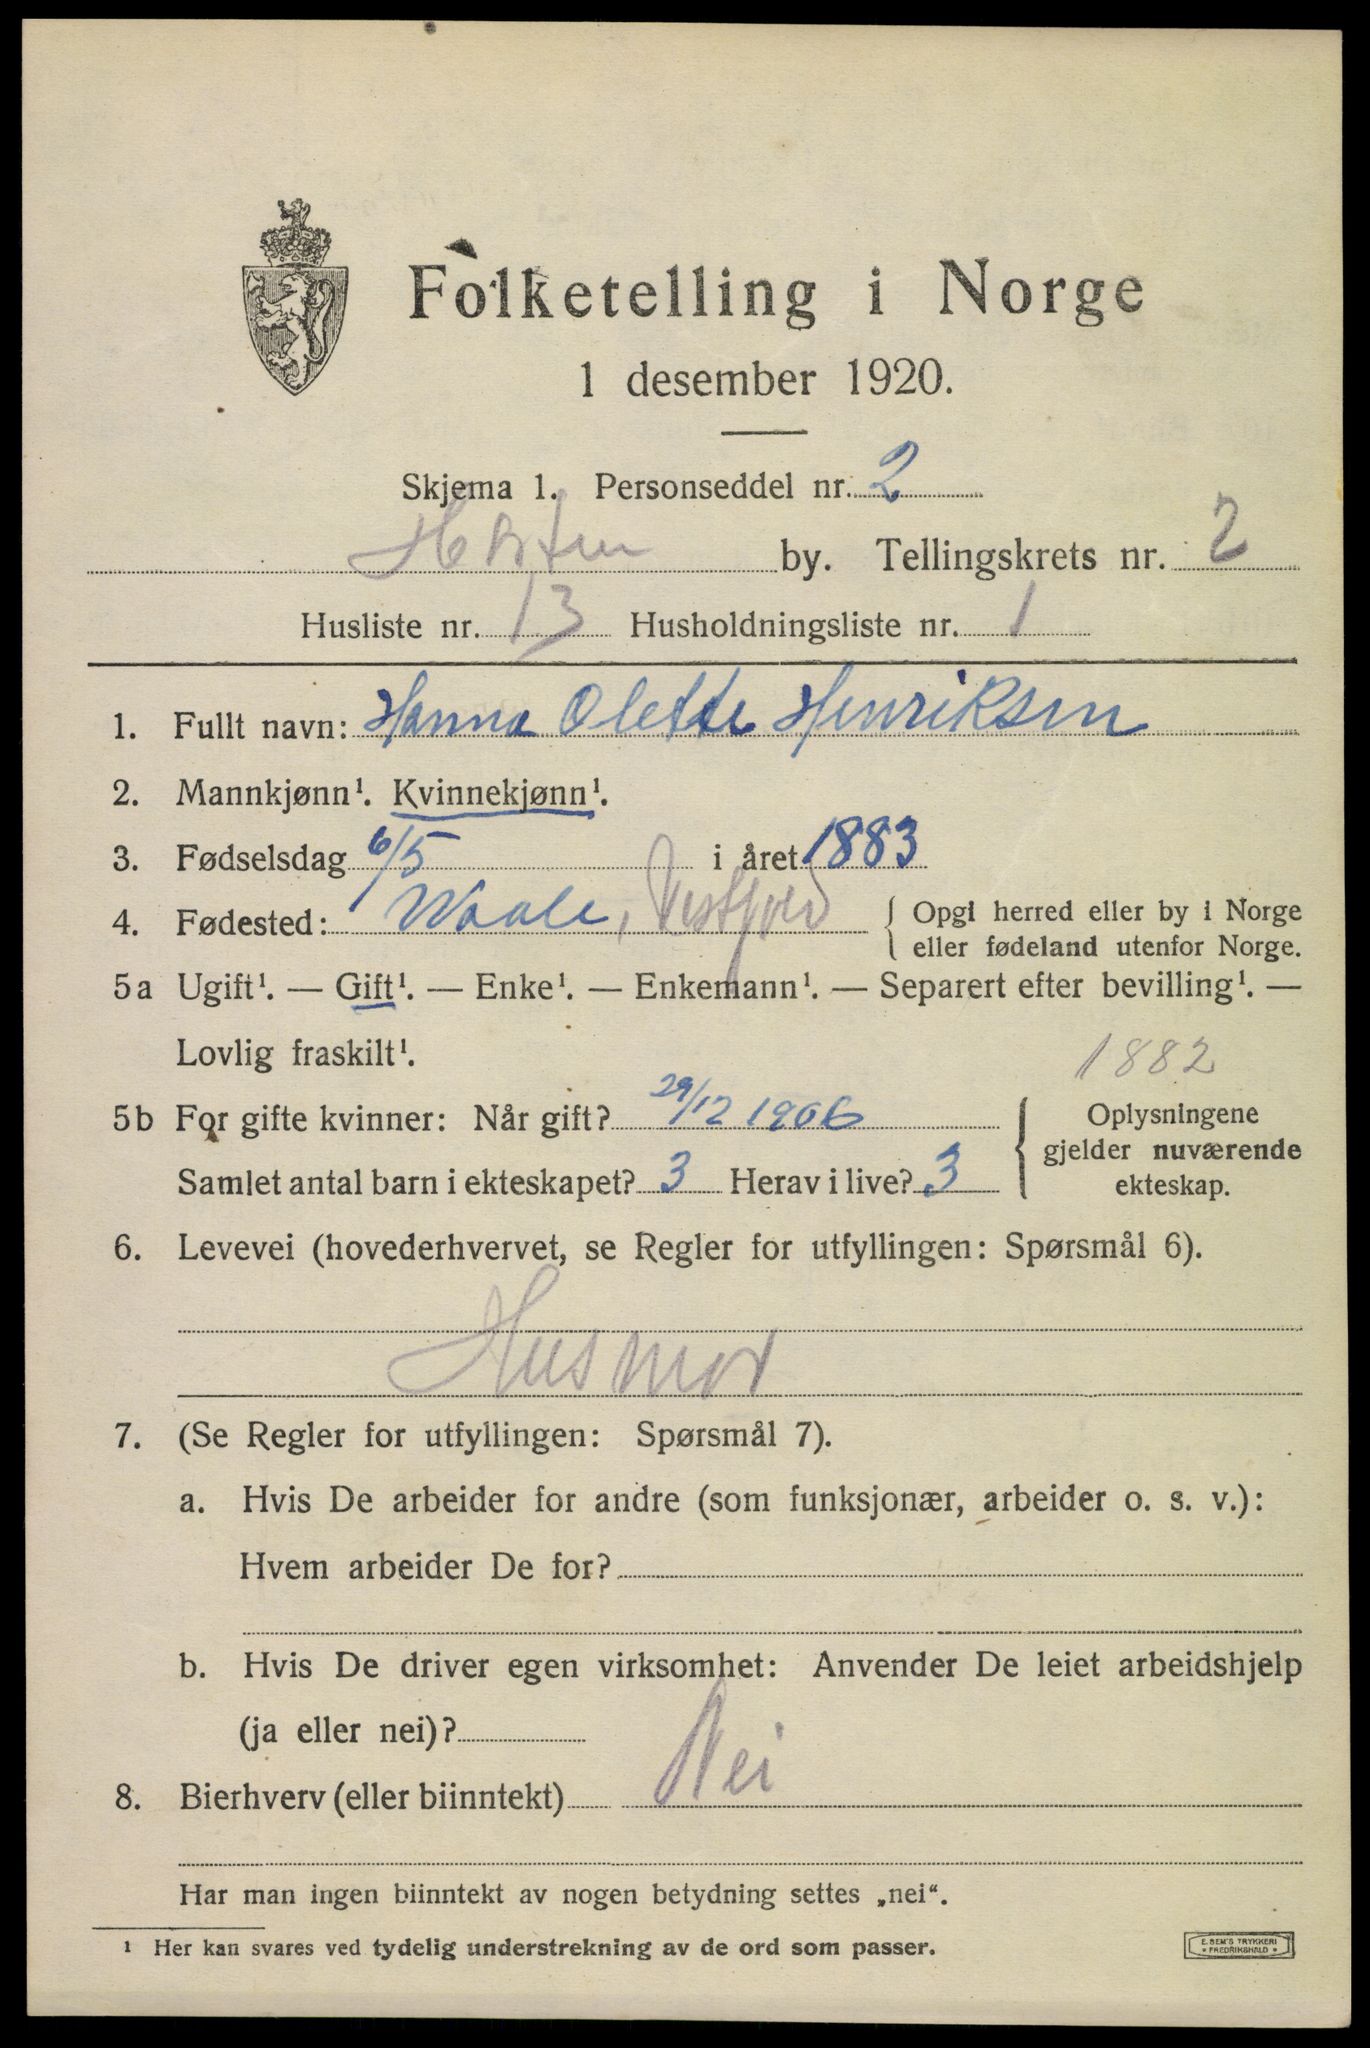 Folketelling i Norge
1 desember 1920.
Skjema 1. Personseddel nr. 2
Horten by. Tellingskrets nr. 2
Husliste nr. 13 Husholdningsliste nr. 1
1. Fullt navn: Hanna Olette Henriksen
2. Mannkjønn¹. Kvinnekjønn¹.
3. Fødselsdag 6/5 i året 1883
4. Fødested: Waale, Vestfold { Opgi herred eller by i Norge
eller fødeland utenfor Norge.
5a Ugift¹. — Gift¹. — Enke¹. — Enkemann¹. — Separert efter bevilling¹. —
Lovlig fraskilt¹. 1882
5b For gifte kvinner: Når gift? 29/12 1906 { Oplysningene
gjelder nuværende
Samlet antal barn i ekteskapet? 3 Herav i live? 3 ekteskap.
6. Levevei (hovederhvervet, se Regler for utfyllingen: Spørsmål 6).
Husmor
7. (Se Regler for utfyllingen: Spørsmål 7).
a. Hvis De arbeider for andre (som funksjonær, arbeider o. s. v.):
Hvem arbeider De for?
b. Hvis De driver egen virksomhet: Anvender De leiet arbeidshjelp
(ja eller nei)?
8. Bierhverv (eller biinntekt) Nei
Har man ingen biinntekt av nogen betydning settes „nei“.
¹ Her kan svares ved tydelig understrekning av de ord som passer.
E. SEM'S TRYKKERI
* FREDRIKSHALD *